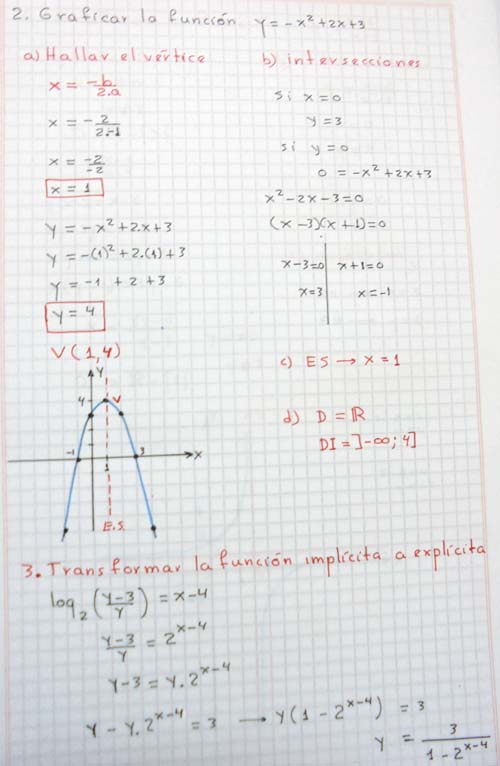 2. Graficar la función y = -x² + 2x + 3
a) Hallar el vértice
x = -b/2.a
x = -2/2.-1
x = -2/-2
x = 1
y = -x² + 2.x + 3
y = -(1)² + 2.(1) + 3
y = -1 + 2 + 3
y = 4
V(1,4)
b) intersecciones
si x = 0
y = 3
si y = 0
0 = -x² + 2x + 3
x² - 2x - 3 = 0
(x - 3)(x + 1) = 0
x - 3 = 0 | x + 1 = 0
x = 3 | x = -1
c) ES → x = 1
d) D = ℝ
DI = ]-∞; 4]
Y
4
V
-1
1
3
X
E.S.
3. Transformar la función implícita a explícita
log₂ (y-3/y) = x-4
y-3/y = 2^(x-4)
y-3 = y.2^(x-4)
y - y.2^(x-4) = 3 → y(1 - 2^(x-4)) = 3
y = 3/(1 - 2^(x-4))